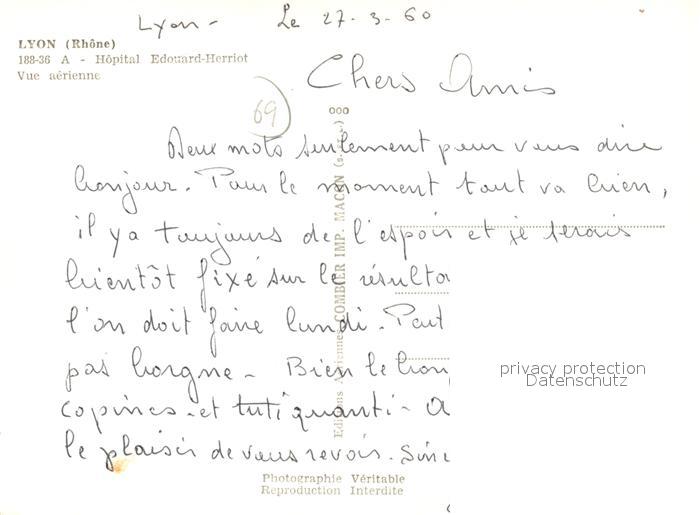 Lyon - Le 27-3-60
LYON (Rhône)
188-36 A - Hôpital Edouard-Herriot
Vue aérienne
Chers Amis
69
ooo
Deux mots seulement pour vous dire
bonjour. Pour le moment tout va bien,
il y a toujours de l'espoir et je serais
bientôt fixé sur le résulta
l'on doit faire lundi. Peut
pas borgne - Bien le bon
copines - et tuti quanti - A
le plaisir de vous revoir. Sinc
COMBIER IMP. MACON
privacy protection
Datenschutz
Photographie Véritable
Reproduction Interdite